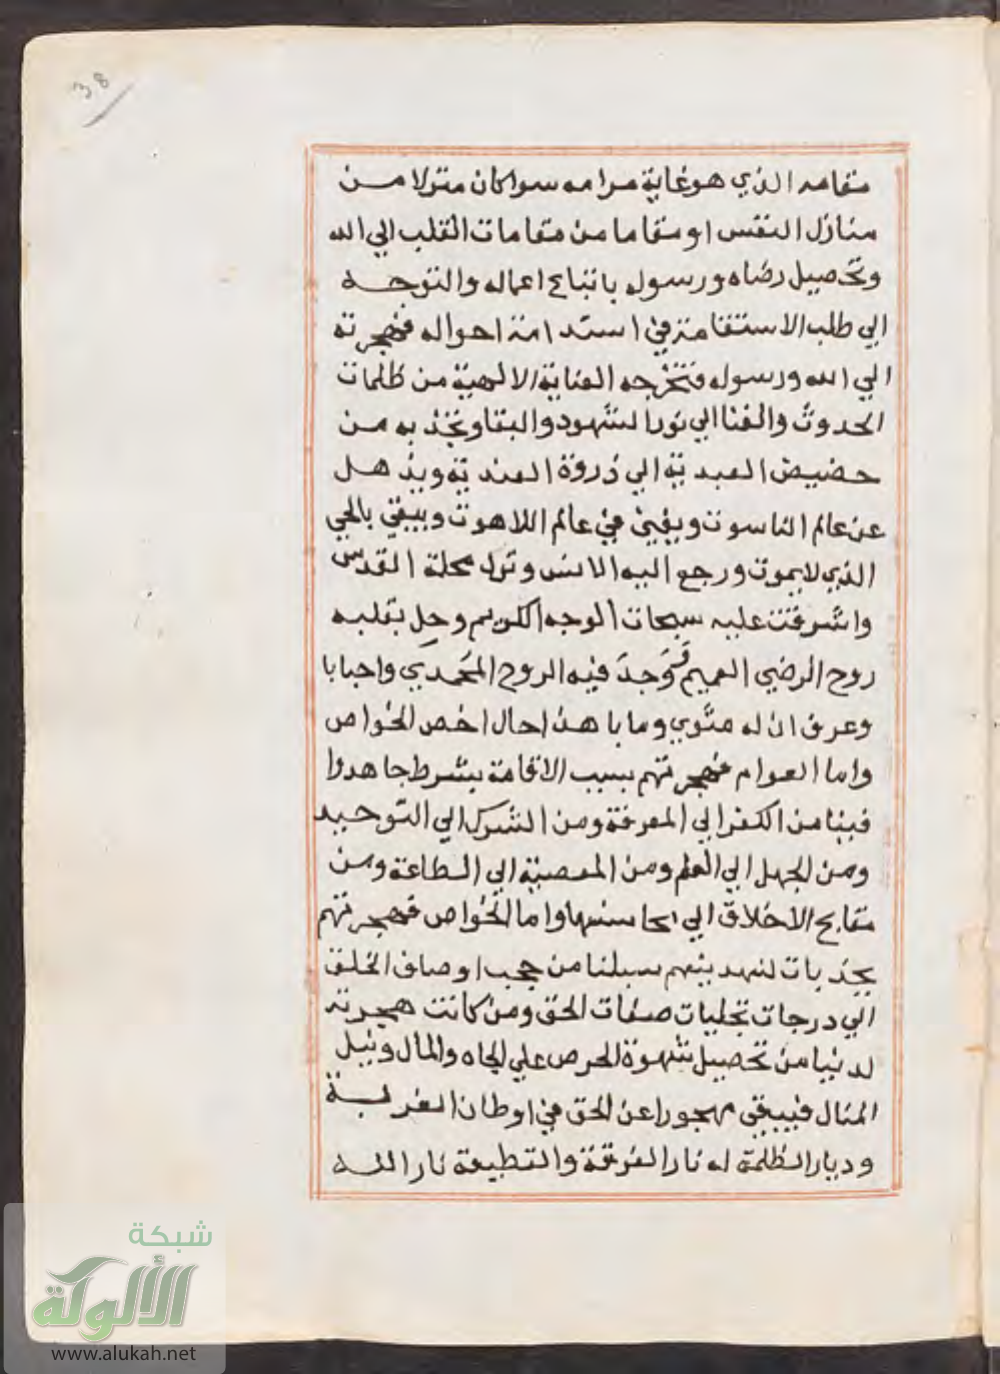 38
مقامه الذي هو غاية مرامه سوا كان منزلا من
منازل النفس او مقاما من مقامات القلب الي الله
وتحصيل رضاه ورسوله باتباع اعماله والتوجه
الي طلب الاستقامة في استدامة احواله فهجرته
الي الله ورسوله فتخرجه العناية الالهية من ظلمات
الحدوث والفنا الي نور الشهود والبقا وتجذبه من
حضيض العبدية الي ذروة العندية ويذهل
عن عالم الناسوت ويفني في عالم اللاهوت ويبقي بالحي
الذي لا يموت ورجع اليه الانس ونزل محلة القدس
واشرقت عليه سبحات الوجه الكريم وحل بقلبه
روح الرضي العميم فوجد فيه الروح المحمدي واحبابا
وعرف ان له مثوي ومابا هذا حال اخص الخواص
واما العوام فهجرتهم بسبب الاقامة بشرط جاهدوا
فينا من الكفر الي المعرفة ومن الشرك الي التوحيد
ومن الجهل الي العلم ومن المعصية الي الطاعة ومن
مقابح الاخلاق الي محاسنها واما الخواص فهجرتهم
بجذبات لنهدينهم سبلنا من حجب اوصاف الخلق
الي درجات تجليات صفات الحق ومن كانت هجرته
لدنيا من تحصيل شهوة الحرص علي الجاه والمال ونيل
المنال فيبقي مهجورا عن الحق في اوطان الغربة
وديار الظلمة له نار الفرقة والقطيعة نار الله
شبكة
الألوكة
www.alukah.net